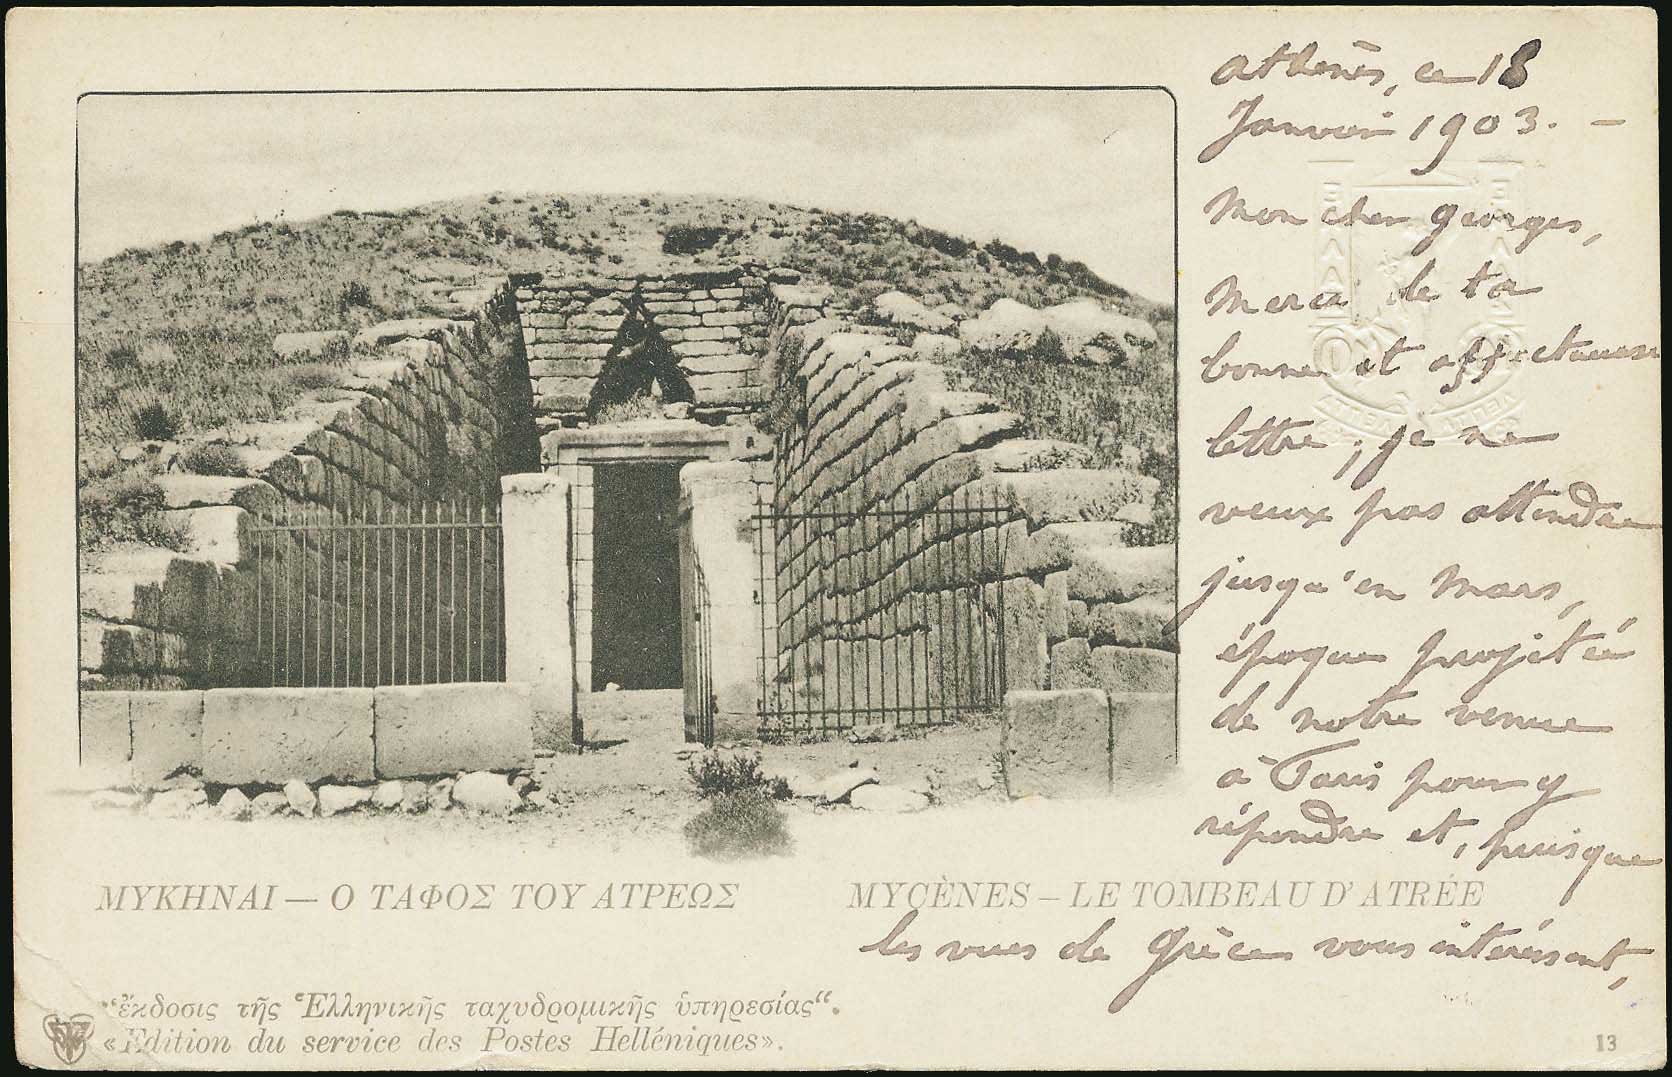 Athènes, ce 18
Janvier 1903. —
Mon cher Georges,
Merci de ta
bonne et affectueuse
lettre, je ne
veux pas attendre
jusqu'en Mars,
époque projetée
de notre venue
à Paris pour y
répondre et, puisque
les vues de Grèce vous intéressent,
ΜΥΚΗΝΑΙ — Ο ΤΑΦΟΣ ΤΟΥ ΑΤΡΕΩΣ
MYCÈNES – LE TOMBEAU D'ATRÉE
“ἔκδοσις τῆς Ἑλληνικῆς ταχυδρομικῆς ὑπηρεσίας“.
«Edition du service des Postes Helléniques».
13